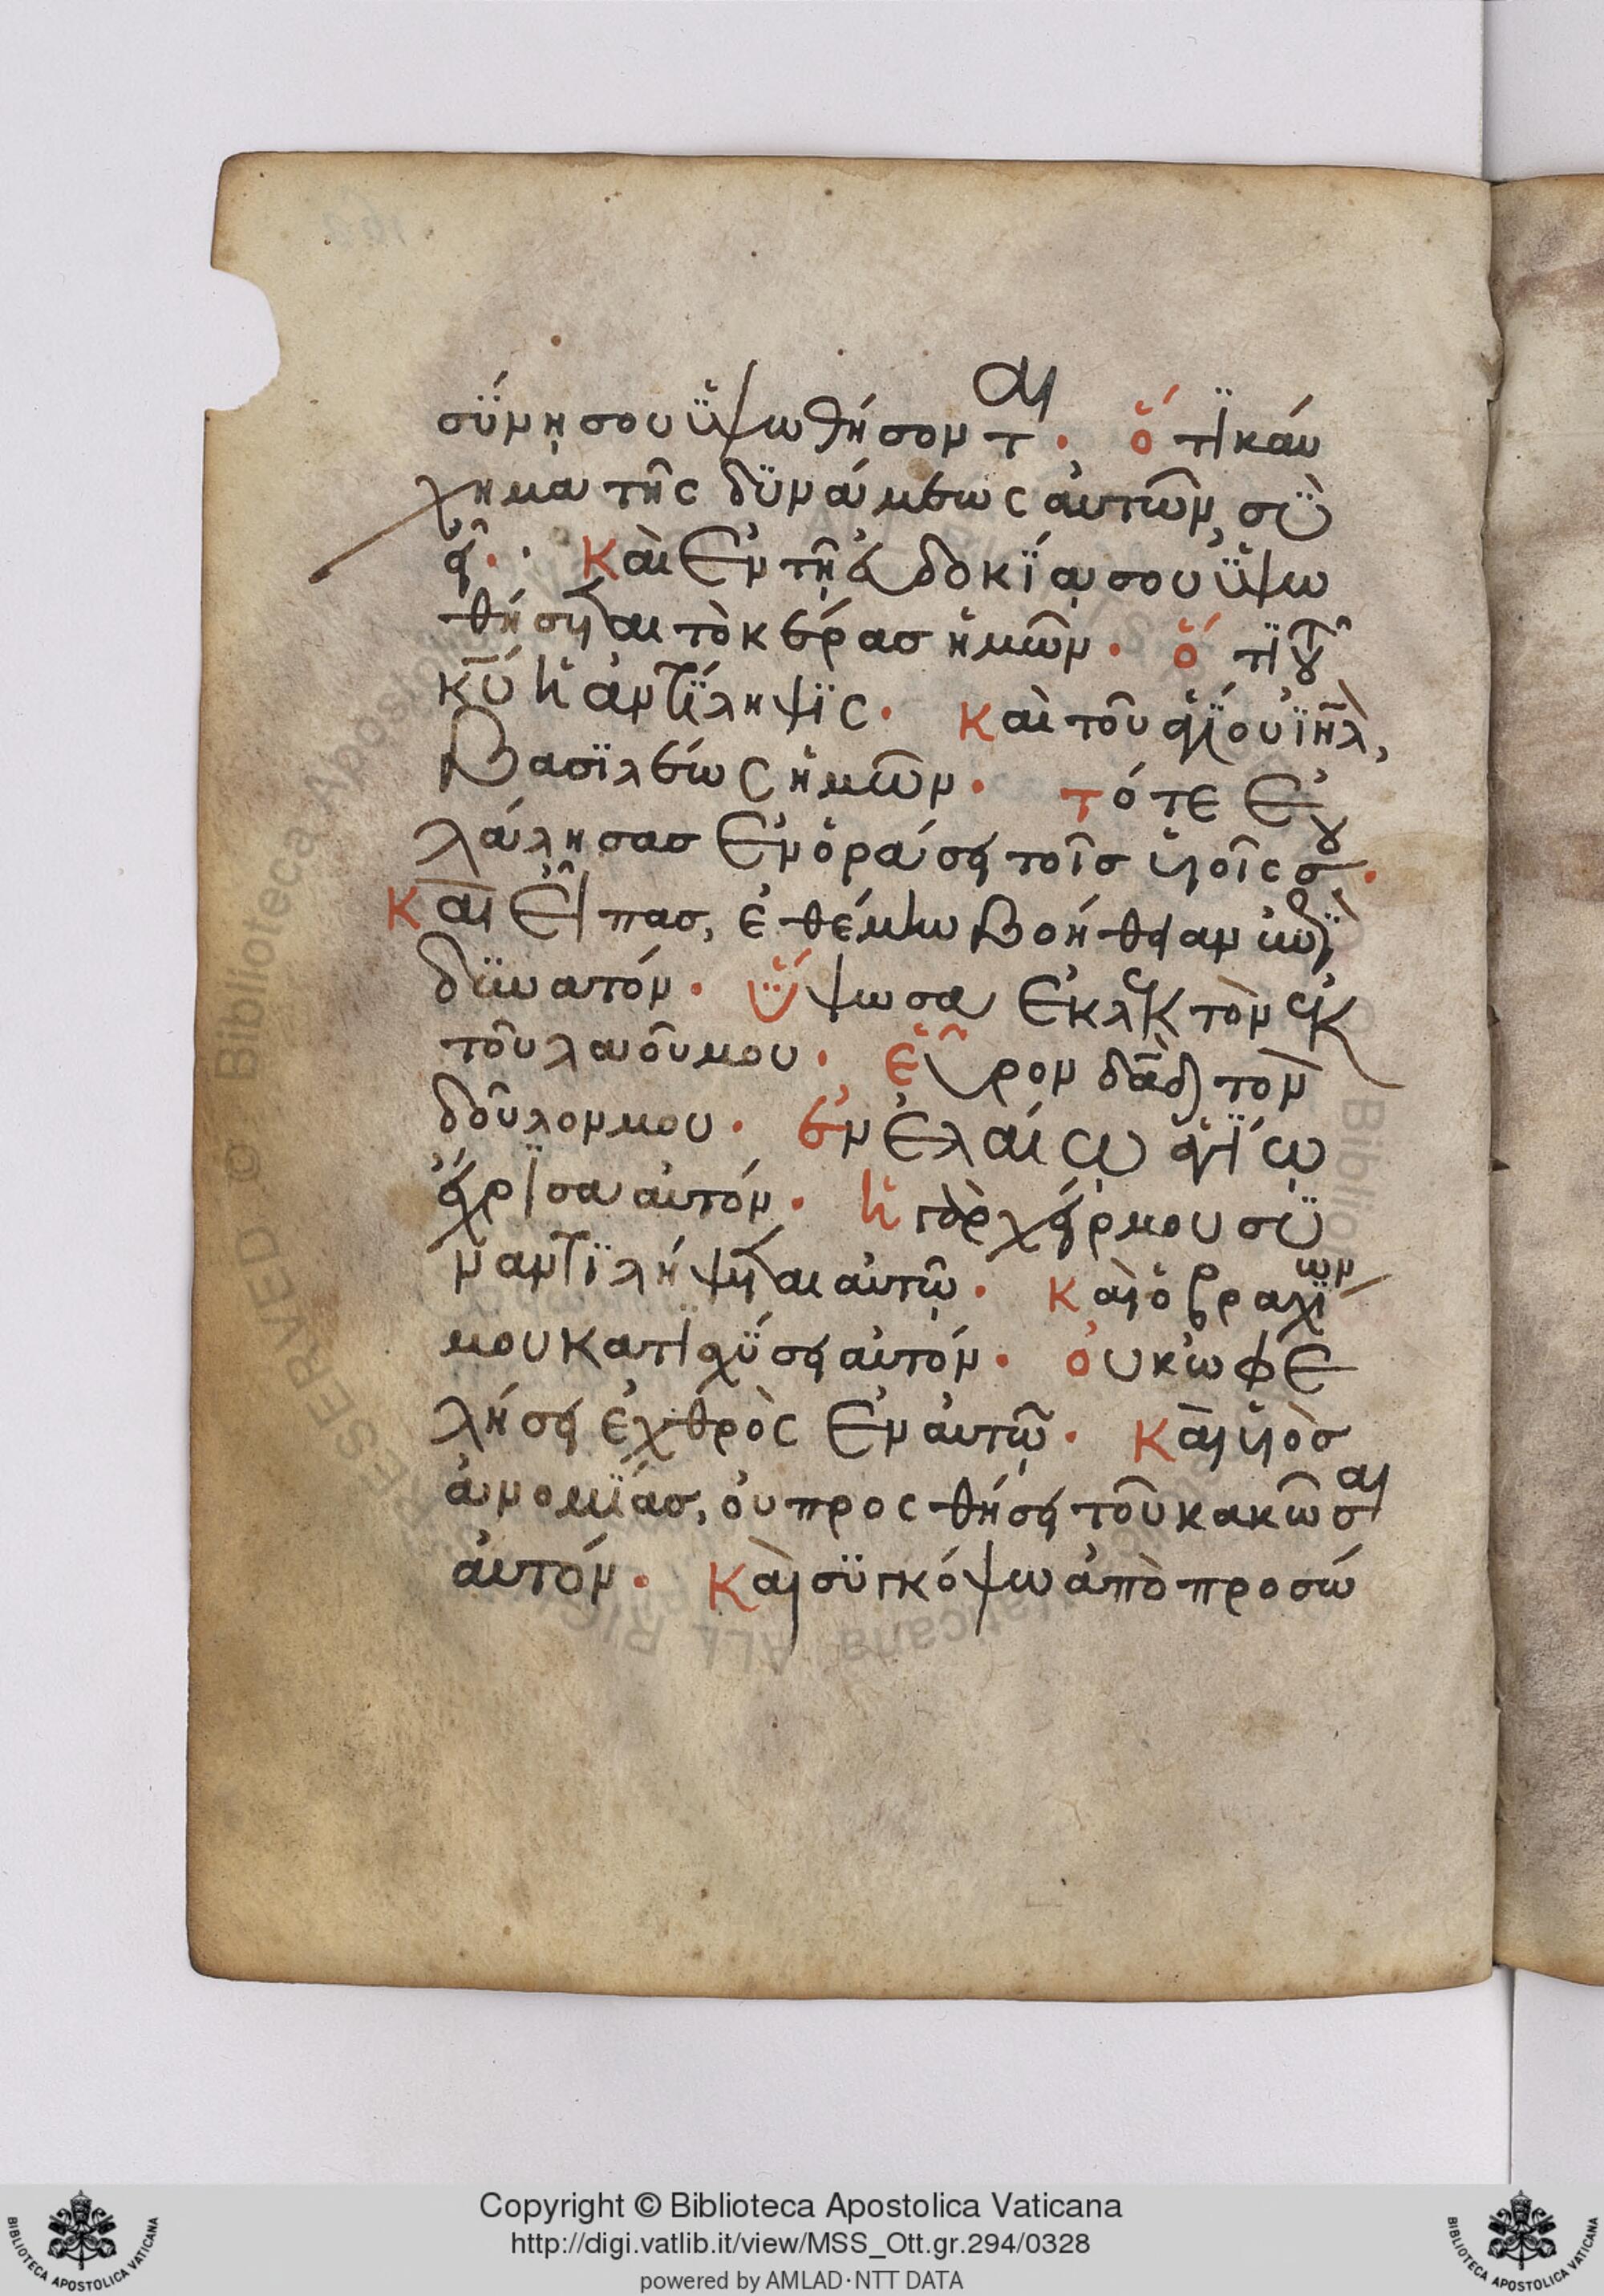 σύνη σου ὑψωθήσονται· ὅτι καύ
χημα τῆς δυνάμεως αὐτῶν, σὺ
εἶ· Καὶ ἐν τῇ εὐδοκίᾳ σου ὑψω
θήσεται τὸ κέρας ἡμῶν· ὅτι τοῦ
κυ ἡ ἀντίληψις· καὶ τοῦ ἁγίου ιηλ,
βασιλέως ἡμῶν· τότε ἐ
λάλησας ἐν ὁράσει τοῖς υἱοῖς σου·
Καὶ εἶπας, ἐθέμην βοήθειαν ἐπὶ
δυνατόν· ὕψωσα ἐκλεκτὸν ἐκ
τοῦ λαοῦ μου· εὗρον δαδ τὸν
δοῦλον μου· ἐν ἐλαίῳ ἁγίῳ
ἔχρισα αὐτόν· ἡ γὰρ χείρ μου συ
ναντιλήψεται αὐτῷ· καὶ ὁ βραχίων
μου κατισχύσει αὐτόν· οὐκ ὠφε
λήσει ἐχθρὸς ἐν αὐτῷ· Καὶ υἱὸς
ἀνομίας, οὐ προσθήσει τοῦ κακῶσαι
αὐτόν· Καὶ συγκόψω ἀπὸ προσώ
Copyright © Biblioteca Apostolica Vaticana
http://digi.vatlib.it/view/MSS_Ott.gr.294/0328
powered by AMLAD·NTT DATA
BIBLIOTECA APOSTOLICA VATICANA
BIBLIOTECA APOSTOLICA VATICANA